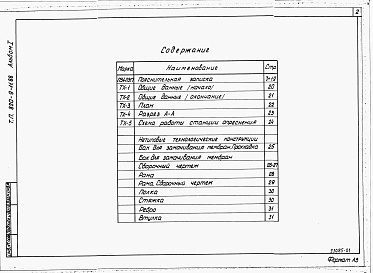 2
Содержание
Марка Наименование Стр
Пояснительная записка 3÷19
ТХ-1 Общие данные (начало) 20
ТХ-2 Общие данные (окончание) 21
ТХ-3 План 22
ТХ-4 Разрез А-А 23
ТХ-5 Схема работы станции опреснения 24
Нетиповые технологические конструкции
Бак для замачивания мембран. Прокладка 25
Бак для замачивания мембран
Сборочный чертеж 26-27
Рама 28
Рама. Сборочный чертеж 29
Полка 30
Стяжка 30
Ребро 31
Втулка 31
Альбом I
Формат А3